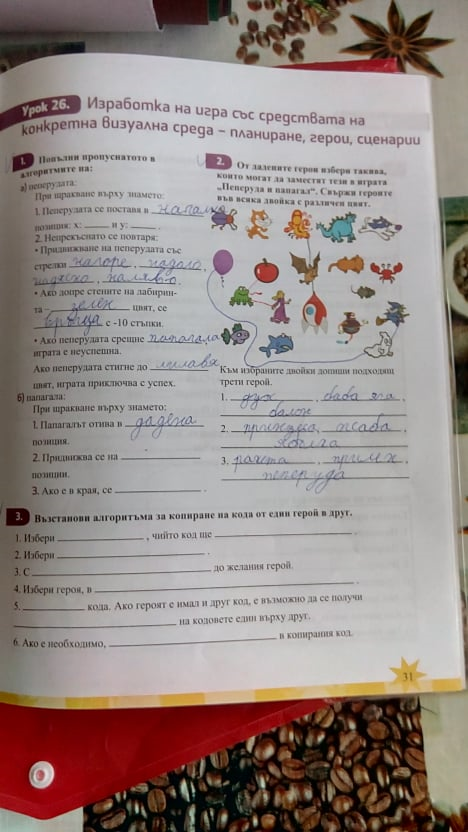 Урок 26. Изработка на игра със средствата на
конкретна визуална среда – планиране, герои, сценарии
1. Попълни пропуснатото в
алгоритмите на:
а) пеперудата:
При щракване върху знамето:
1. Пеперудата се поставя в
позиция: x: ______ и y: ______.
2. Непрекъснато се повтаря:
• Придвижване на пеперудата със
стрелки нагоре, надолу,
надясно, наляво.
• Ако допре стените на лабирин-
та – зелен цвят, се
връща с -10 стъпки.
• Ако пеперудата срещне папагала
играта е неуспешна.
Ако пеперудата стигне до
цвят, играта приключва с успех.
б) папагала:
При щракване върху знамето:
1. Папагалът отива в дадена
позиция.
2. Придвижва се на ______
позиции.
3. Ако е в края, се ______.
2. От дадените герои избери такива,
които могат да заместят тези в играта
„Пеперуда и папагал“. Свържи героите
във всяка двойка с различен цвят.
Към избраните двойки допиши подходящ
трети герой.
1. дух, баба яга,
балон
2. принцеса, жаба,
ябълка
3. ракета, прилеп,
пеперуда
3. Възстанови алгоритъма за копиране на кода от един герой в друг.
1. Избери ______, чийто код ще ______.
2. Избери ______.
3. С ______ до желания герой.
4. Избери героя, в ______.
5. ______ кода. Ако героят е имал и друг код, е възможно да се получи
______ на кодовете един върху друг.
6. Ако е необходимо, ______ в копирания код.
31